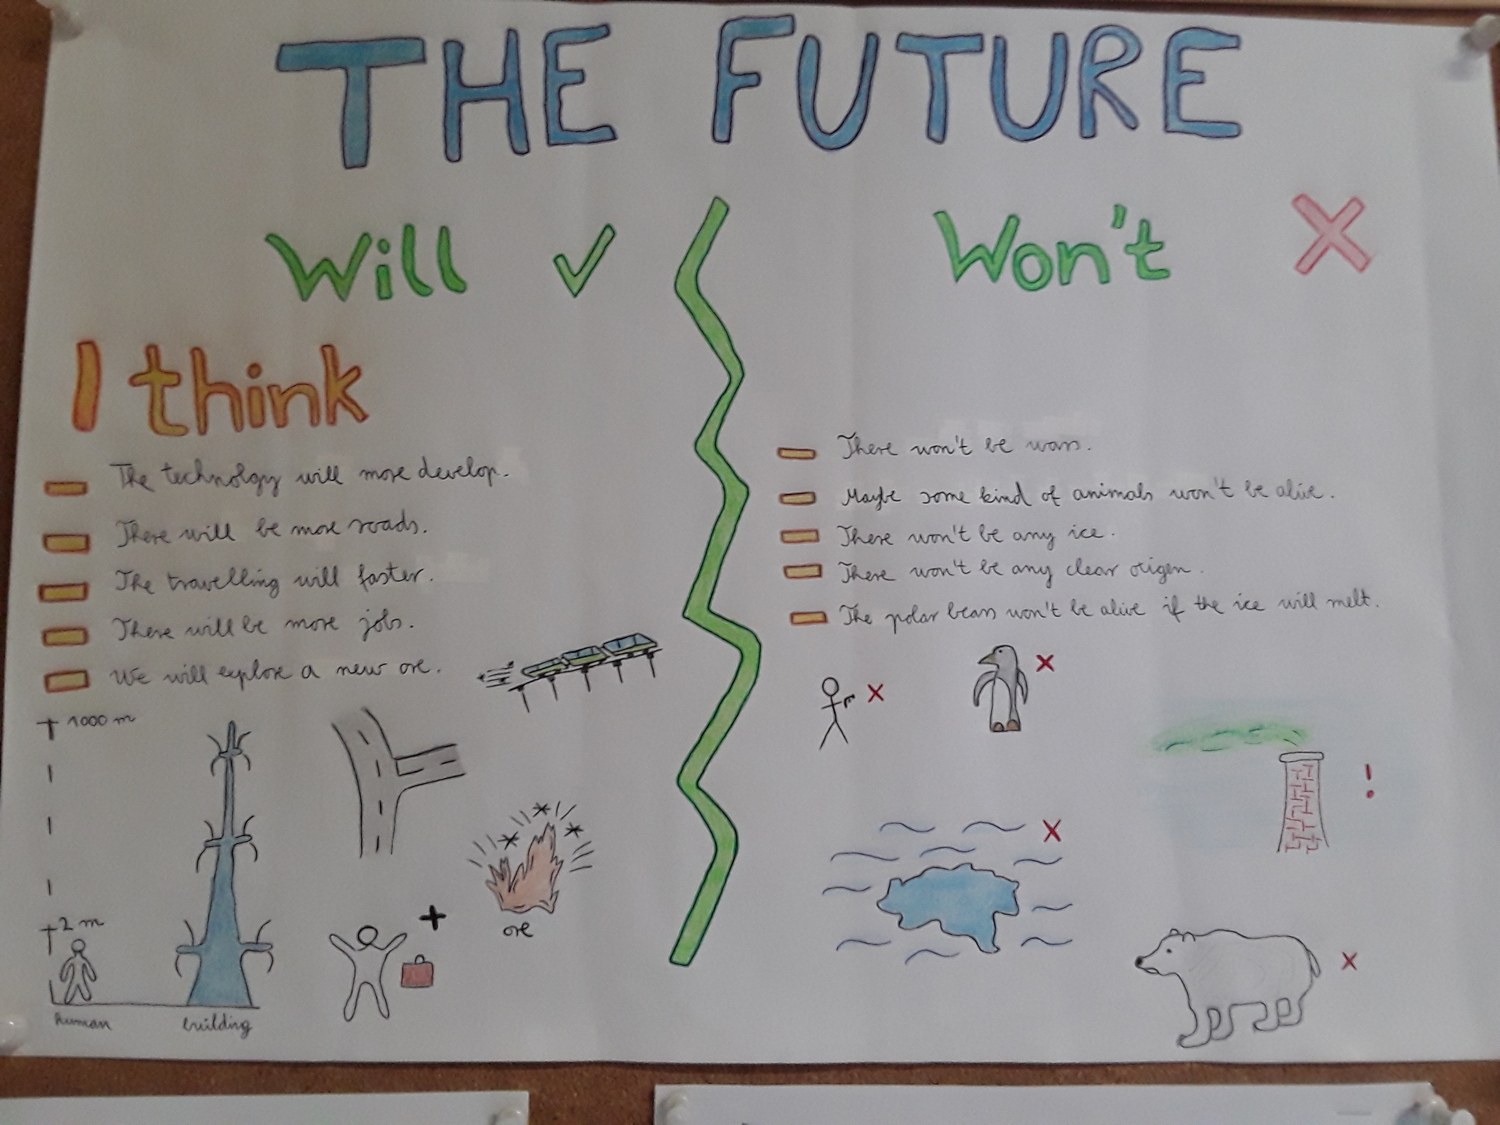 THE FUTURE
Will
Won't
I think
The technolgy will more develop.
There will be more roads.
The travelling will faster.
There will be more jobs.
We will explore a new ore.
There won't be wars.
Maybe some kind of animals won't be alive.
There won't be any ice.
There won't be any clear origen.
The polar bears won't be alive if the ice will melt.
1000 m
2 m
human
building
ore